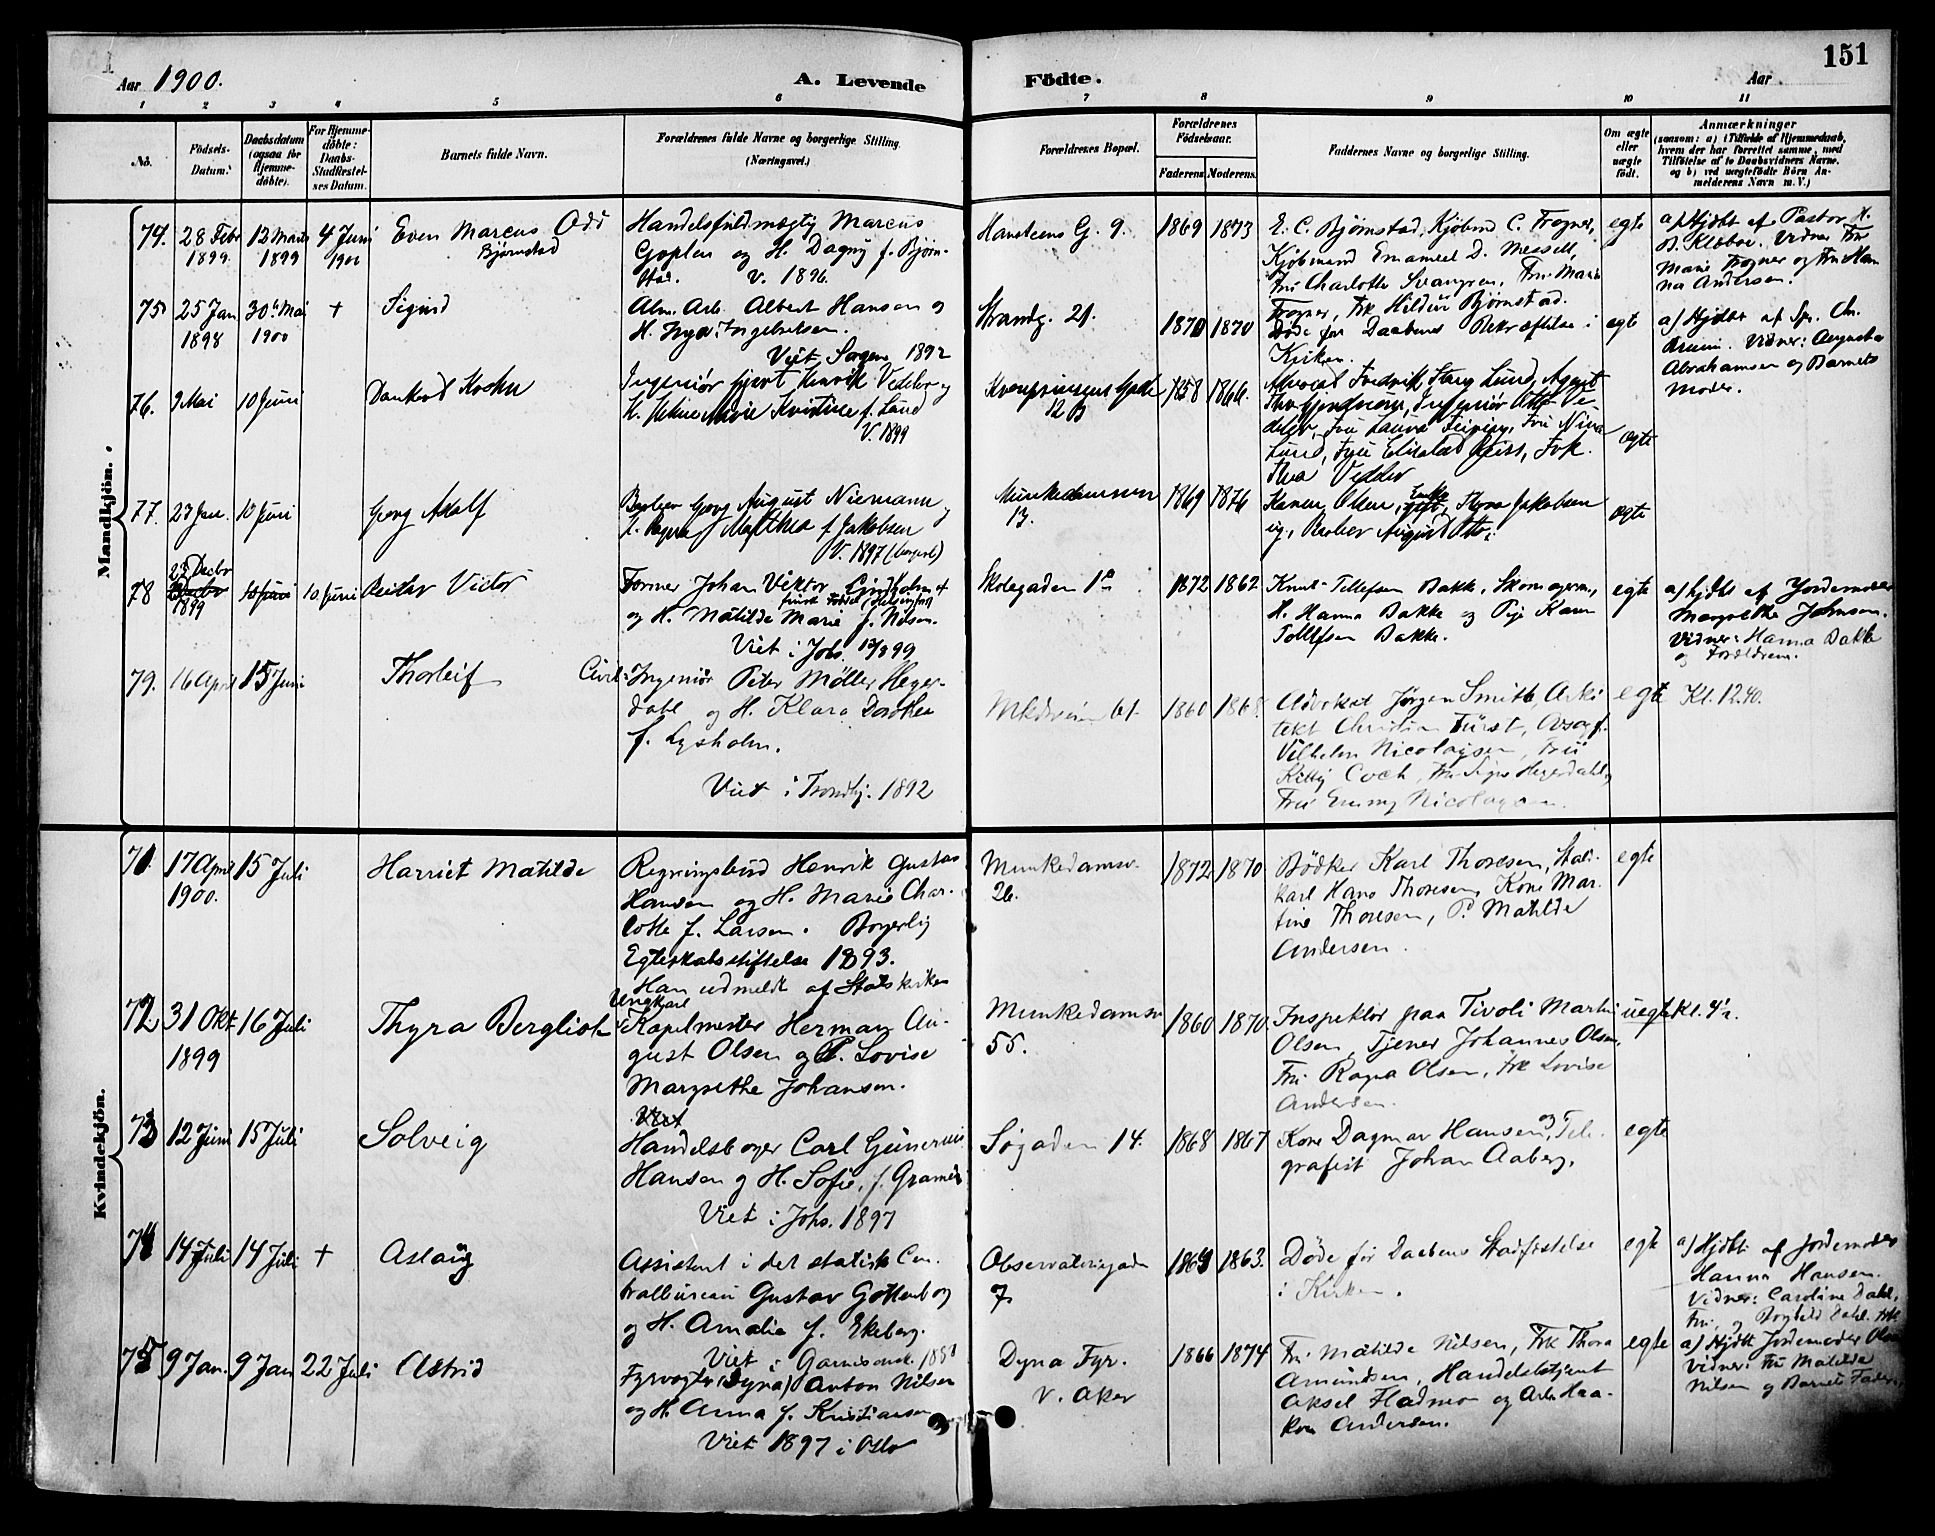 151
Aar 1900.
A. Levende
Födte.
Aar
1 2 3 4 5 6 7 8 9 10 11
No.
Födsels-
Datum.
Daabsdatum
(ogsaa for
Hjemme-
döbte).
For Hjemme-
döbte:
Daabs-
Stadfestel-
ses Datum.
Barnets fulde Navn.
Forældrenes fulde Navne og borgerlige Stilling.
(Næringsvei.)
Forældrenes Bopæl.
Forældrenes
Födselsaar.
Faderens. Moderens.
Faddernes Navne og borgerlige Stilling.
Om ægte
eller
uægte
födt.
Anmærkninger
(saasom: a) i Tilfælde af Hjemmedaab,
hvem der har forrettet samme, med
Tilföielse af to Daabsvidners Navne,
og b) ved uægtefödte Börn An-
melderens Navn m. V.)
Mandkjön.
74.
28 Febr
1899
12 Marts
1899
4 Juni
1900
Even Marcus Odd
Bjørnstad
Handelsfuldmægtig Marcus
Goplen og H. Dagny f. Bjørn-
stad. V. 1896.
Hansteens G. 9.
1869
1873
E. C. Bjørnstad, Kjøbmd C. Frogner,
Kjøbmand Emanuel D.
Fru Charlotte Svangren, Fru Marie
Frogner, Frk Hildur Bjørnstad.
egte
a) Hjdbt af Pastor H.
B. Klæboe. Vidner Fru
Marie Frogner og Fru Han
na Andersen.
75
25 Jan
1898
30 Mai
1900
+
Sigurd
Alm. Arb. Albert Hansen og
H. Inga Ingebretsen.
Viet, Sorgen. 1892
Strandg. 21.
1870
1870
Døde før Daabens Bekræftelse i
Kirken.
egte
a) Hjdbt af Spr. Chr.
Bruun. Vidner: Augusta
Abrahamsen og Barnets
Moder.
76.
9 Mai
10 Juni
Dankert Krohn
Ingeniør Gjert Henrik Vedeler og
H. Marie Kristine f. Lund
V. 1899
Kronprinsens Gade
12 B
1858
1866.
Fredrik Stang Lund, Agent
Ingeniør Otto Ve-
deler, Fru Laura Fru Nina
Lund, Fru Elisabet Frk.
Thea Vedeler
egte
77.
27 Jan.
10 Juni
Georg Adolf
Georg August Niemann og
H. Mathea f. Jakobsen
V. 1897 (borgerl)
Munkedamsvn
13.
1869
1876
Karen Olsen, Enke Thyra Jakobsen
ug. August Otto.
egte
78
23 Decbr
1899
10 Juni
10 Juni
Reidar Victor
Former Johan Viktor Lindholm
og H. Matilde Marie f. Nilsen.
Viet i Johs. 13/8 99
Skolegaden 1a
1872
1862
Knut Tellefsen Bakke, Skomagerm,
H. Hanna Bakke og Pige Karen
Tollefsen Bakke.
egte
a) hjdbt af Jordemoder
Margrethe Johnsen.
Vidner: Hanna Bakke
og Forældrene.
79.
16 April
15 Juni
Thorleif
Civil-Ingeniør Peter Möller Heyer-
dahl og H. Klara Dorothea
f. Lysholm.
Viet i Trondhj. 1892
Mkdsveien 61.
1860
1868.
Advokat Jørgen Smith, Arki
tekt Christian Fürst,
Vilhelm Nicolaysen, Fru
Kitty Coch, Fru Signe Heyerdahl,
Fru Emmy Nicolaysen.
egte
Kl. 12.40.
Kvindekjön.
71
17 April
1900.
15 Juli
Harriet Matilde
Regningsbud Henrik Gustav
Hansen og H. Marie Char-
lotte f. Larsen. Borgerlig
Egteskabsstiftelse 1893.
Han udmeldt af Statskirken
Munkedamsv.
26.
1872
1870
Bödker Karl Thoresen, Stald-
karl Hans Thoresen, Kone Mar-
tine Thoresen, P. Matilde
Andersen.
egte
72
31 Okt.
1899
16 Juli
Thyra Bergliot
Ungkarl
Kapelmester Herman Au-
gust Olsen og P. Lovise
Margrethe Johansen.
Munkedamsv
55.
1860
1870.
Inspektør paa Tivoli Martin
Olsen, Tjener Johannes Olsen,
Fru Ragna Olsen, Frk Lovise
Andersen.
uegte
Kl. 4½.
73
12 Juni
15 Juli
Solveig
Viet
Handelsborger Carl Gunerius
Hansen og H. Sofie, f.
Viet i Johs. 1897
Søgaden 14.
1868
1867
Kone Dagmar Hansen og Tele-
grafist Johan Aaberg.
egte
74
14 Juli
14 Juli
+
Aslaug
Assistent i det statistk Cen-
tralbureau Gustav
og H. Amalie f. Ekeberg.
Viet i Garnisonsk.
Observatoriegaden
7
1863.
Døde før Daabens Stadfestelse
i Kirken.
egte
a) Hjdbt af Jordemoder
Hanna Hansen.
Vidner: Caroline Dahl,
Fru, og Borghild Dahl, Frk
75
9 Jan.
9 Jan
22 Juli
Astrid
Fyrvogter (Dyna) Anton Nilsen
og H. Anna f. Kristiansen
Viet 1897 i Oslo
Dyna Fyr.
V. Aker
1866
1874
Fru Matilde Nilsen, Frk Thora
Amundsen, Handelsbetjent
Aksel Fladmoe og Arb. Haa-
kon Andersen.
egte
a) Hjdbt Jordemoder Olsen
Vidner: Fru Matilde
Nilsen og Barnets Fader.